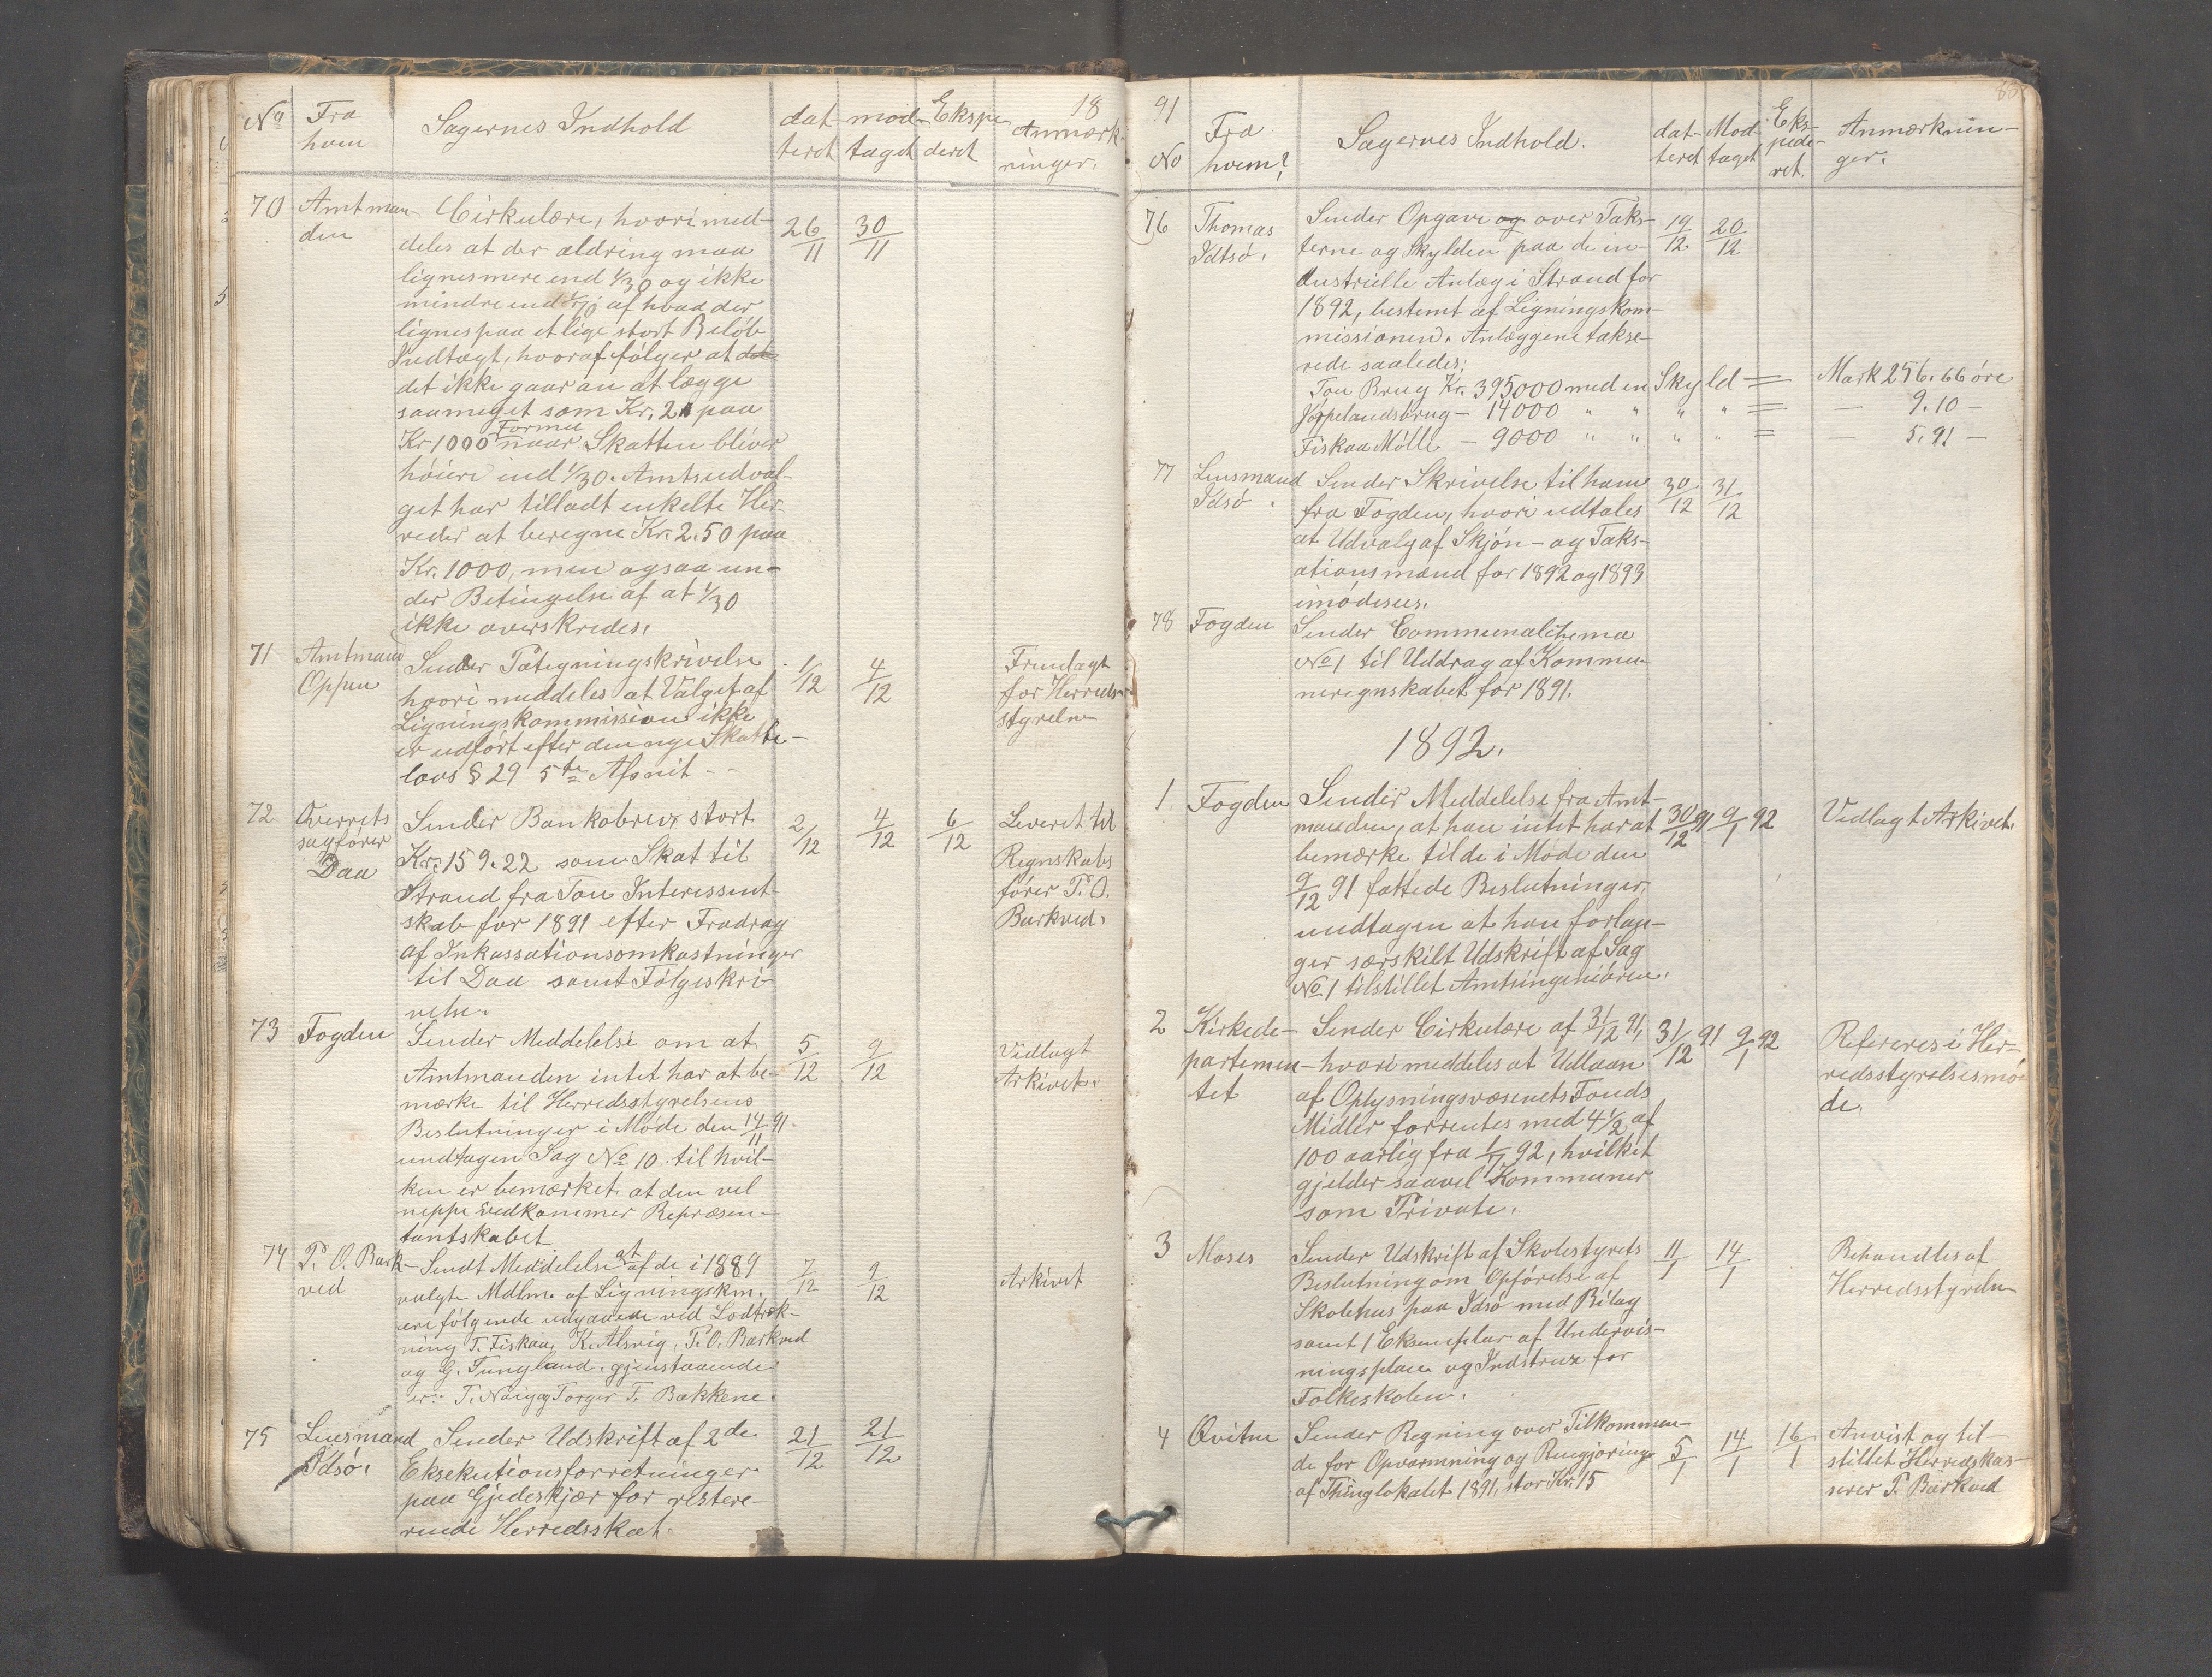 18
No Fra hvem Sagernes Indhold dat- teret mod- taget Ekspe deret Anmærk- ninger.
70 Amtman- den
Cirkulære, hvori med- 26/11 30/11
deles at der aldring maa
lignes mere end 1/30 og ikke
mindre end 1/70 af hvad der
lignes paa et lige stort Beløb
Indtægt, hvoraf følger at det
det ikke gaar an at lægge
saameget som Kr. 2 paa
Kr 1000 Formue naar Skatten bliver
høiere end 1/30. Amtsudval-
get har tilladt enkelte Her-
reder at beregne Kr. 2.50 paa
Kr. 1000, men ogsaa un-
der Betingelse af at 1/30
ikke overskrides.
71 Amtmand Oppen
Sender Pategningskrivelse 1/12 4/12 Fremlagt
hvori meddeles at Valget af for Herreds-
Ligningskommission ikke styrelsen
er udført efter den nye Skatte-
lovs § 29 5te Afsnit -
72 Overrets sagfører Daa
Sender Bankobrev stort 2/12 4/12 6/12 Leveret til
Kr. 159.22 som Skat til Regnskabs
Strand fra Tou Interessent- fører P. O.
skab for 1891 efter Fradrag Barkved.
af Inkassationsomkostninger
til Daa samt Følgeskri-
velse.
73 Fogden
Sender Meddelelse om at 5/12 9/12 Vedlagt
Amtmanden intet har at be- Arkivet.
mærke til Herredsstyrelsens
Beslutninger i Møde den 14/11 91.
undtagen Sag No 10. til hvil-
ken er bemærket at den vel
neppe vedkommer Repræsen-
tantskabet
74 P. O. Bark- ved
Sendt Meddelelse at af de i 1889 7/12 9/12 Arkivet
valgte Mdlm. af Ligningskm.
ere følgende udgaaede ved Lodtræk-
ning T. Fiskaa, K. Alsvig, P. O. Barkved
og G. Tungland. gjenstaaende
er: T. Nag og Torger T. Bækkene.
75 Lensmand Idsø.
Sender Udskrift af 2de 21/12 21/12
Eksekutionsforretninger
paa Gjedeskjær for restere-
rende Herredsskat.
91
No Fra hvem? Sagernes Indhold. dat- teret Mod- taget Eks- pede- ret. Anmærknin- ger.
76 Thomas Idtsø.
Sender Opgave og over Taks- 19/12 20/12
terne og Skylden paa de in-
dustrielle Anlæg i Strand for
1892, bestemt af Ligningskom-
missionen. Anlæggene takse-
rede saaledes:
Tou Brug Kr. 395000 med en Skyld = Mark 256.66 øre
Jøppelandsbrug - 14000 " " " " = - 9.10 -
Fiskaa Mølle - 9000 " " " " = - 5.91 -
77 Lensmand Idsø.
Sender Skrivelse til ham 30/12 31/12
fra Fogden, hvori udtales
at Udvalg af Skjøn- og Taks-
ationsmænd for 1892 og 1893
imødesees.
78 Fogden
Sender Communalschema
No 1 til Uddrag af Kommu-
neregnskabet for 1891.
1892.
1 Fogden
Sender Meddelelse fra Amt-
manden, at han intet har at 30/12 91 9/1 92 Vedlagt Arkivet
bemærke til de i Møde den
9/12 91 fattede Beslutninger,
undtagen at han forlan-
ger særskilt Udskrift af Sag
No 1 tilstillet Amtsingeniøren.
2 Kirkede- partemen- tet
Sender Cirkulære af 31/12 91, 31/12 91 9/1 92 Refereres i Her-
hvori meddeles at Udlaan redsstyrelsesmø
af Oplysningsvæsenets Fonds de.
Midler forrentes med 4 1/2 af
100 aarlig fra 1/7 92, hvilket
gjelder saavel Kommuner
som Private.
3 Moses
Sender Udskrift af Skolestyrets 11/1 14/1 Behandles af
Beslutning om Opførelse af Herredsstyrelsen
Skolehus paa Idsø med Bilag
samt 1 Eksemplar af Undervis-
ningsplan og Indstrux for
Folkeskolen.
4 Qvitne
Sender Regning over Tilkommen-
de for Opvarmning og Rengjøring 5/1 14/1 16/1 Anvist og til-
af Thinglokalet 1891, stor Kr. 15 stillet Herredskas-
serer P. Barkved